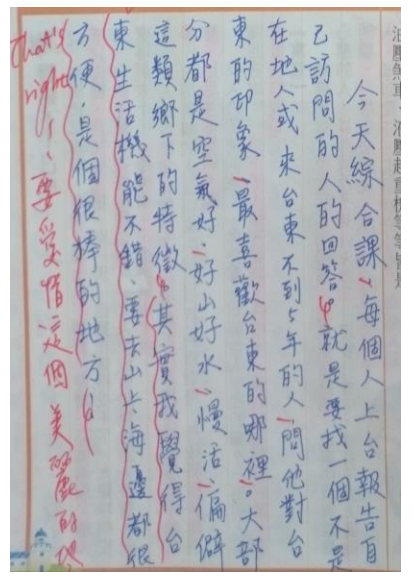 油壓煞車、油壓起重機等等皆是
今天綜合課、每個人上台報告自
己訪問的人的回答。就是要找一個不是
在地人或來台東不到5年的人、問他對台
東的印象、最喜歡台東的哪裡。大部
分都是空氣好、好山好水、慢活、偏僻
這類鄉下的特徵。其實我覺得台
東生活機能不錯、要去山上、海邊都很
方便、是個很棒的地方!
that's right!、要愛惜這個美麗的